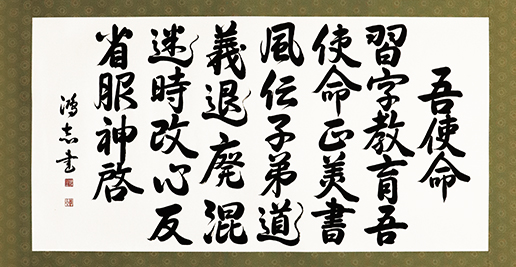 吾使命
習字教育吾
使命正美書
風伝子弟道
義退廃混
迷時改心反
省服神啓
鴻志書